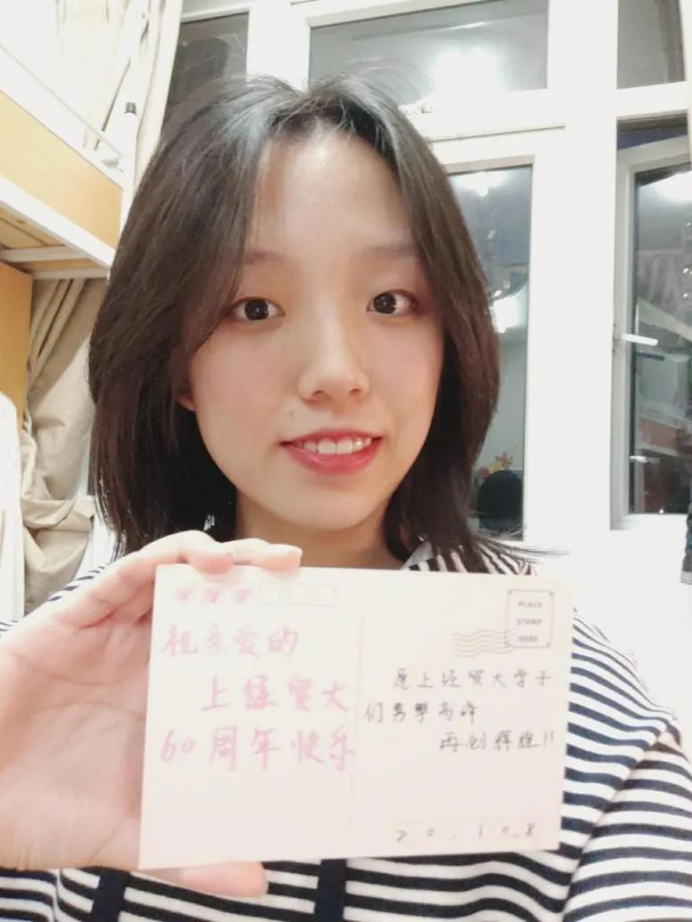 祝亲爱的
上经贸大
60周年快乐
PLACE
STAMP
HERE
愿上经贸大学子
们勇攀高峰
再创辉煌!!
20.10.8